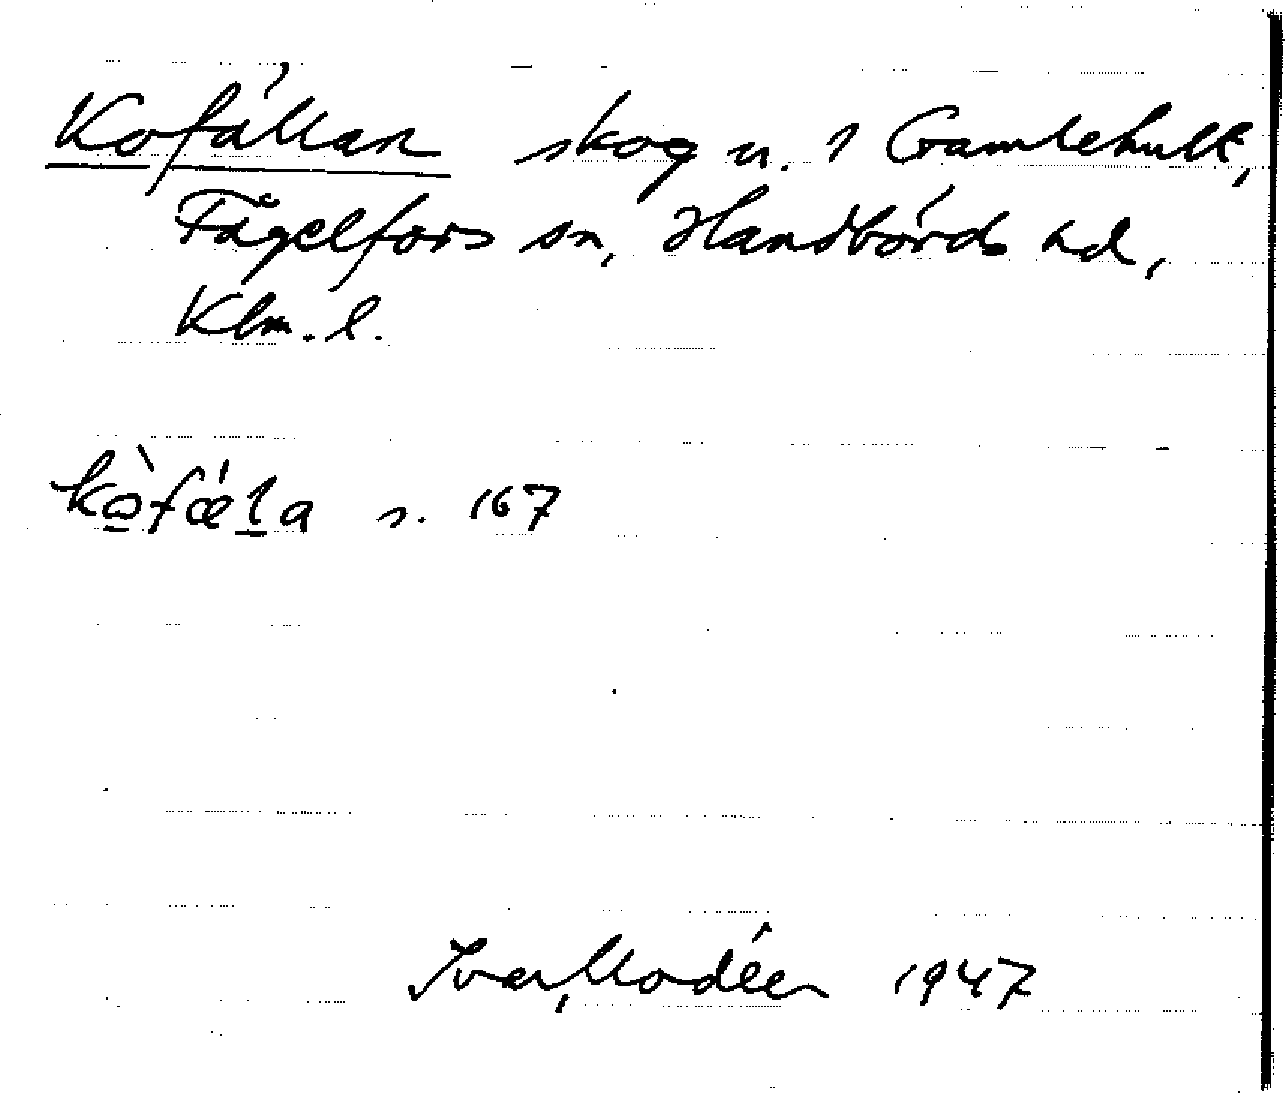 Kofällan skog u. 1 Gamlehult,
Fågelfors sn, Handbörds hd,
Klm. l.
kò̠fǽl̠a s. 167
Ivar Modéer 1947